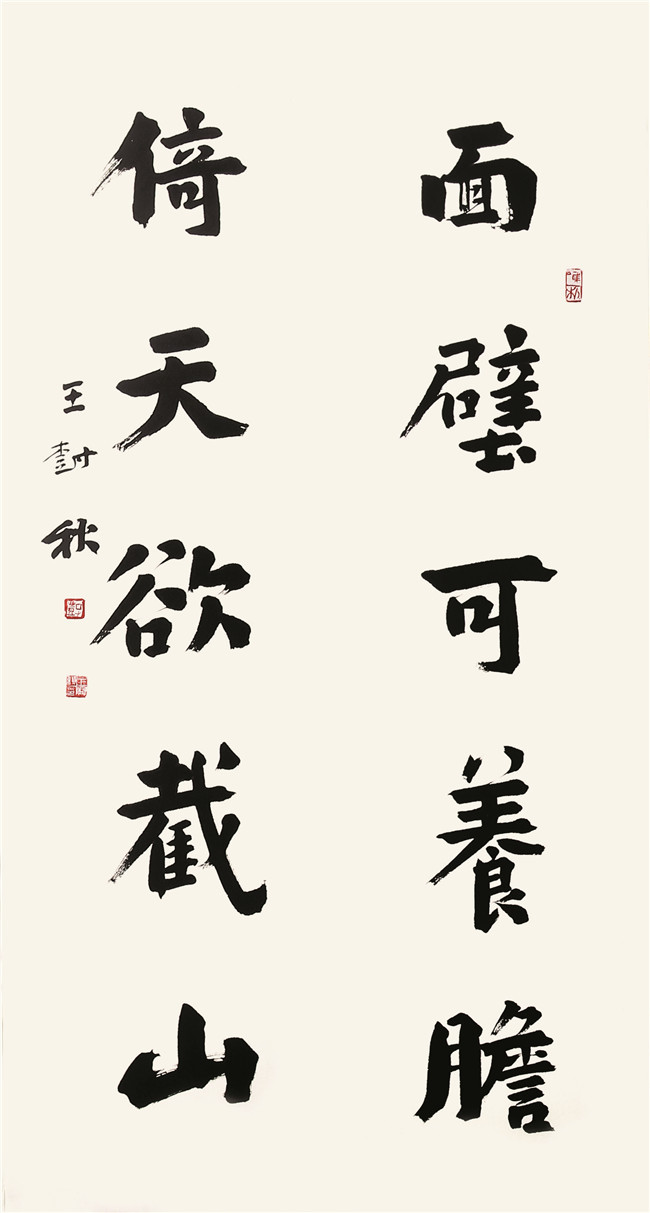 面壁可養膽
倚天欲截山
王樹秋